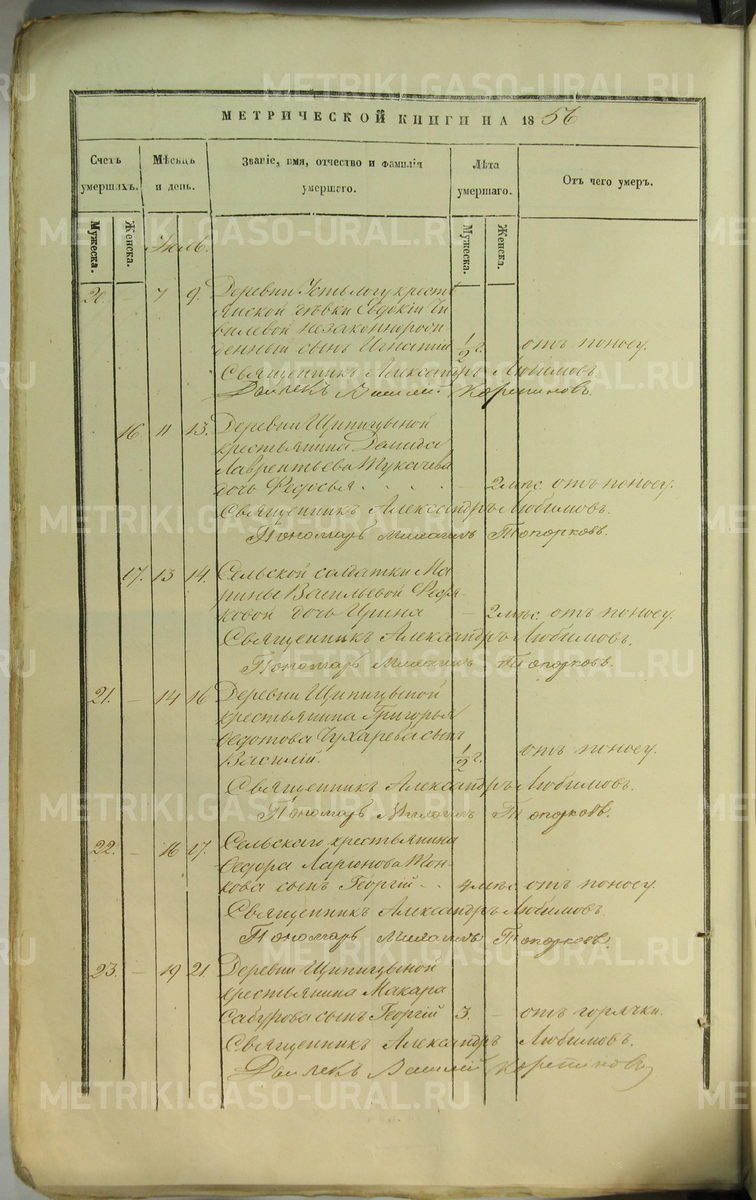 METRIKI.GASO-URAL.RU
МЕТРИЧЕСКОЙ КНИГИ НА 1856
Счетъ умершихъ. Мѣсяцъ и день. Званіе, имя, отчество и фамилія умершаго. Лѣта умершаго. Отъ чего умеръ.
Мужеска. Женска. Мужеска. Женска.
Іюль.
20. – 7 9. Деревни Усть крестъ
янской дѣвки Евдокіи
незаконнорож
денный сынъ Игнатій 1/2 г. отъ поносу.
Священникъ Александръ Любимовъ.
Дьячекъ Василій
16. 11 13. Деревни Щипицыной
крестьянина Демида
Лаврентьева
дочь Федосья – 2 мѣс. отъ поносу.
Священникъ Александръ Любимовъ.
Пономарь Михаилъ Топорковъ.
17. 13 14. Сельской солдатки Ма
рины Васильевой
ковой дочь Ирина – 2 мѣс. отъ поносу.
Священникъ Александръ Любимовъ.
Пономарь Михаилъ Топорковъ.
21. – 14 16 Деревни Щипицыной
крестьянина Григорья
Федотова Чухарева сынъ
Василій. 1/2 г. отъ поносу.
Священникъ Александръ Любимовъ.
Пономарь Михаилъ Топорковъ.
22. – 16 17. Сельскаго крестьянина
Федора Ларіонова
кова сынъ Георгій . . 4 мѣс. отъ поносу.
Священникъ Александръ Любимовъ
Пономарь Михаилъ Топорковъ.
23. – 19 21. Деревни Щипицыной
крестьянина Макара
Сабурова сынъ Георгій 3. – отъ горячки.
Священникъ Александръ Любимовъ.
Дьячекъ Василій